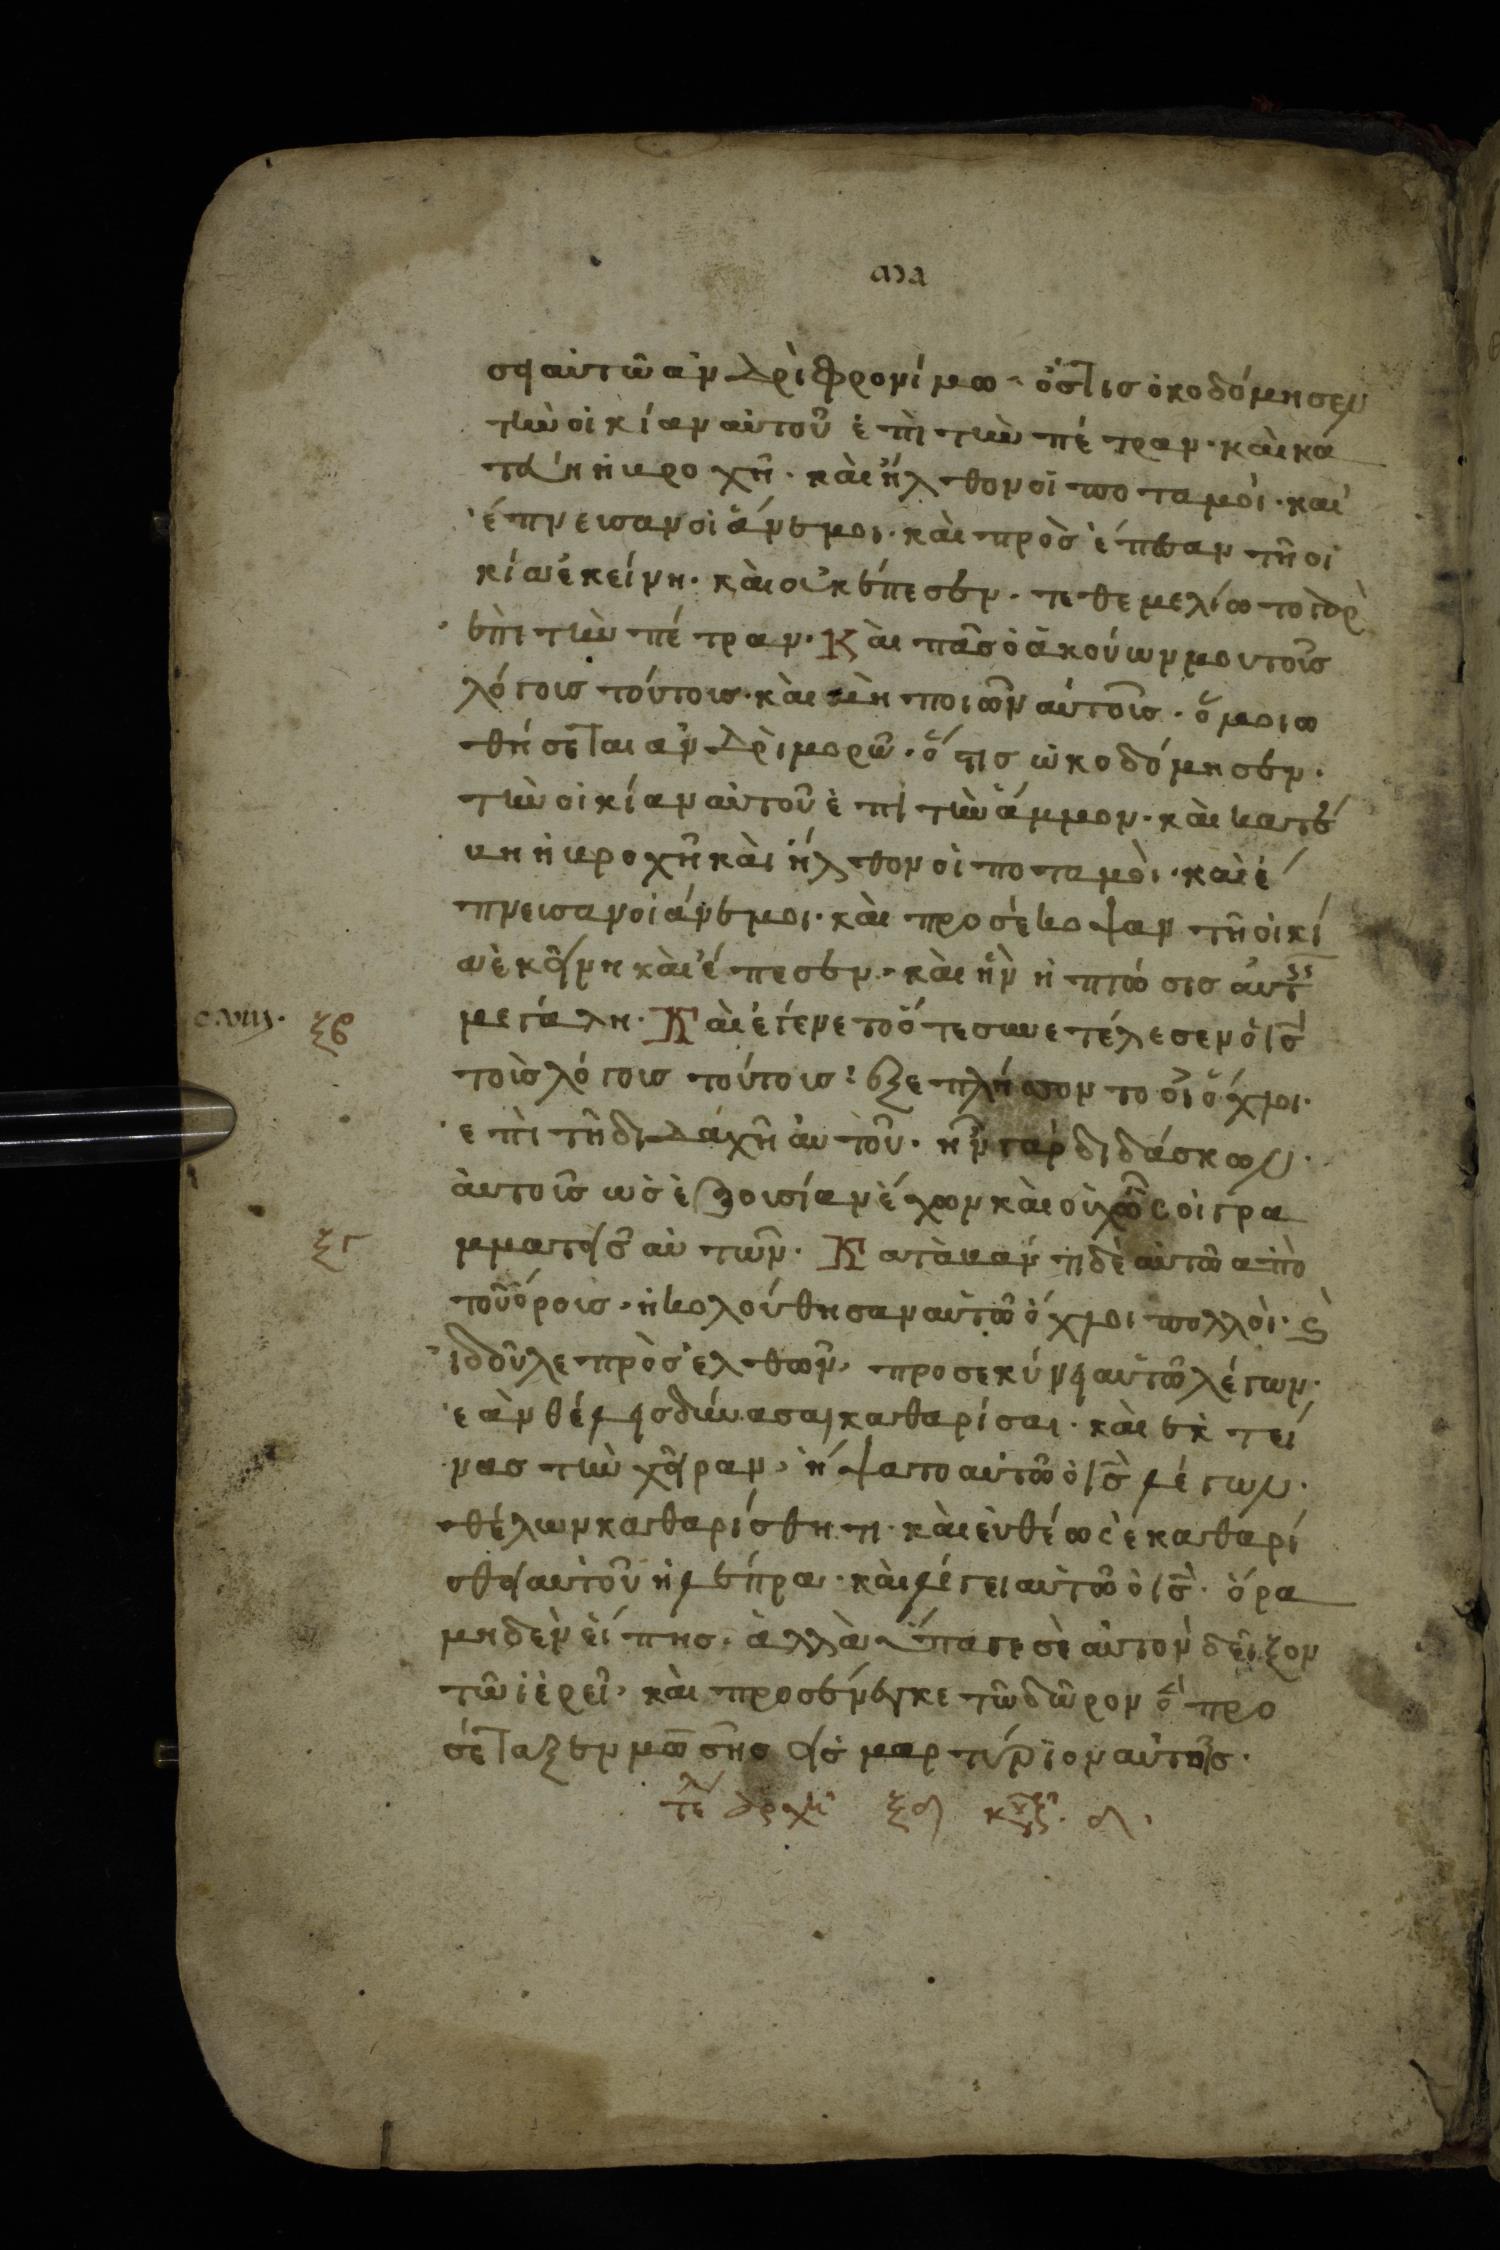 σει αὐτῶ ἀνδρὶ φρονίμω· ὅστις ὀκοδόμησεν
τὴν οἰκίαν αὐτοῦ ἐπὶ τὴν πέτραν· καὶ κα
ἡ βροχῆ· καὶ ἦλθον οἱ ποταμοὶ· καὶ
ἔπνεισαν οἱ ἄνεμοι· καὶ πρὸσέπεσαν τῆ οἰ
κία ἐκείνη· καὶ οὐκ ἔπεσεν·
ἐπὶ τὴν πέτραν· Καὶ πᾶσ ὁ ἀκούων μου τοῦσ
λόγοισ τούτοισ· καὶ μὴ ποιῶν αὐτοῖσ· ὅμοιω
θήσεται ἀνδρὶ μορῶ· ὅστισ ὠκοδόμησεν·
τὴν οἰκίαν αὐτοῦ ἐπὶ τὴν ἄμμον· καὶ κατέ
βη ἡ βροχῆ καὶ ἦλθον οἱ ποταμοὶ· καὶ ἔ
πνεισαν οἱ ἄνεμοι· καὶ προσέκοψαν τῆ οἰκί
α ἐκείνη καὶ ἔπεσεν· καὶ ἦν ἡ πτώσισ αὐτῆσ
μεγάλη· Καὶ ἐγένετο ὅτε συνετέλεσεν ὁ ισ
ξβ
τοὶσ λόγοισ τούτοισ· ἐξεπλήσον το οἱ ὄχλοι·
ἐπὶ τῆ διδάχῆ αὐτοῦ· ἦν γὰρ διδάσκων·
ἀυτοῖσ ὡσ ἐξοισίαν ἔχων καὶ οὐχ ὡς οἱ γρα
μματεῖσ αὐτῶν· Καταβάντι δὲ αὐτῶ ἀπὸ
ξγ
τοῦ ὄροισ· ἠκολούθησαν αὐτῶ ὄχλοι πολλοὶ· καὶ
ἰδοῦ λεπρὸσ ἐλθῶν, προσεκύνει αὐτῶ λέγων·
ἐὰν θέλεισ δύνασαι καθαρίσαι· καὶ ἐκτεί
νασ τὴν χεῖραν, ἥψατο αὐτῶ ὁ ισ λέγων·
θέλων καθαρίσθητι· καὶ ἐυθέως ἐκαθαρί
σθει αὐτοῦ ἡ λέπρα· καὶ λέγει αὐτῶ ὁ ισ· ὅρα
μηδὲν εἴπησ· ἀλλὰ ὕπαγε σὲ αὐτον δεῖξον
τῶ ἱέρεῖ· καὶ προσένεγκε τῶ δῶρον ὃ προ
σέταξεν μωσῆσ εἰσ μαρτύριον αὐτοῖσ·